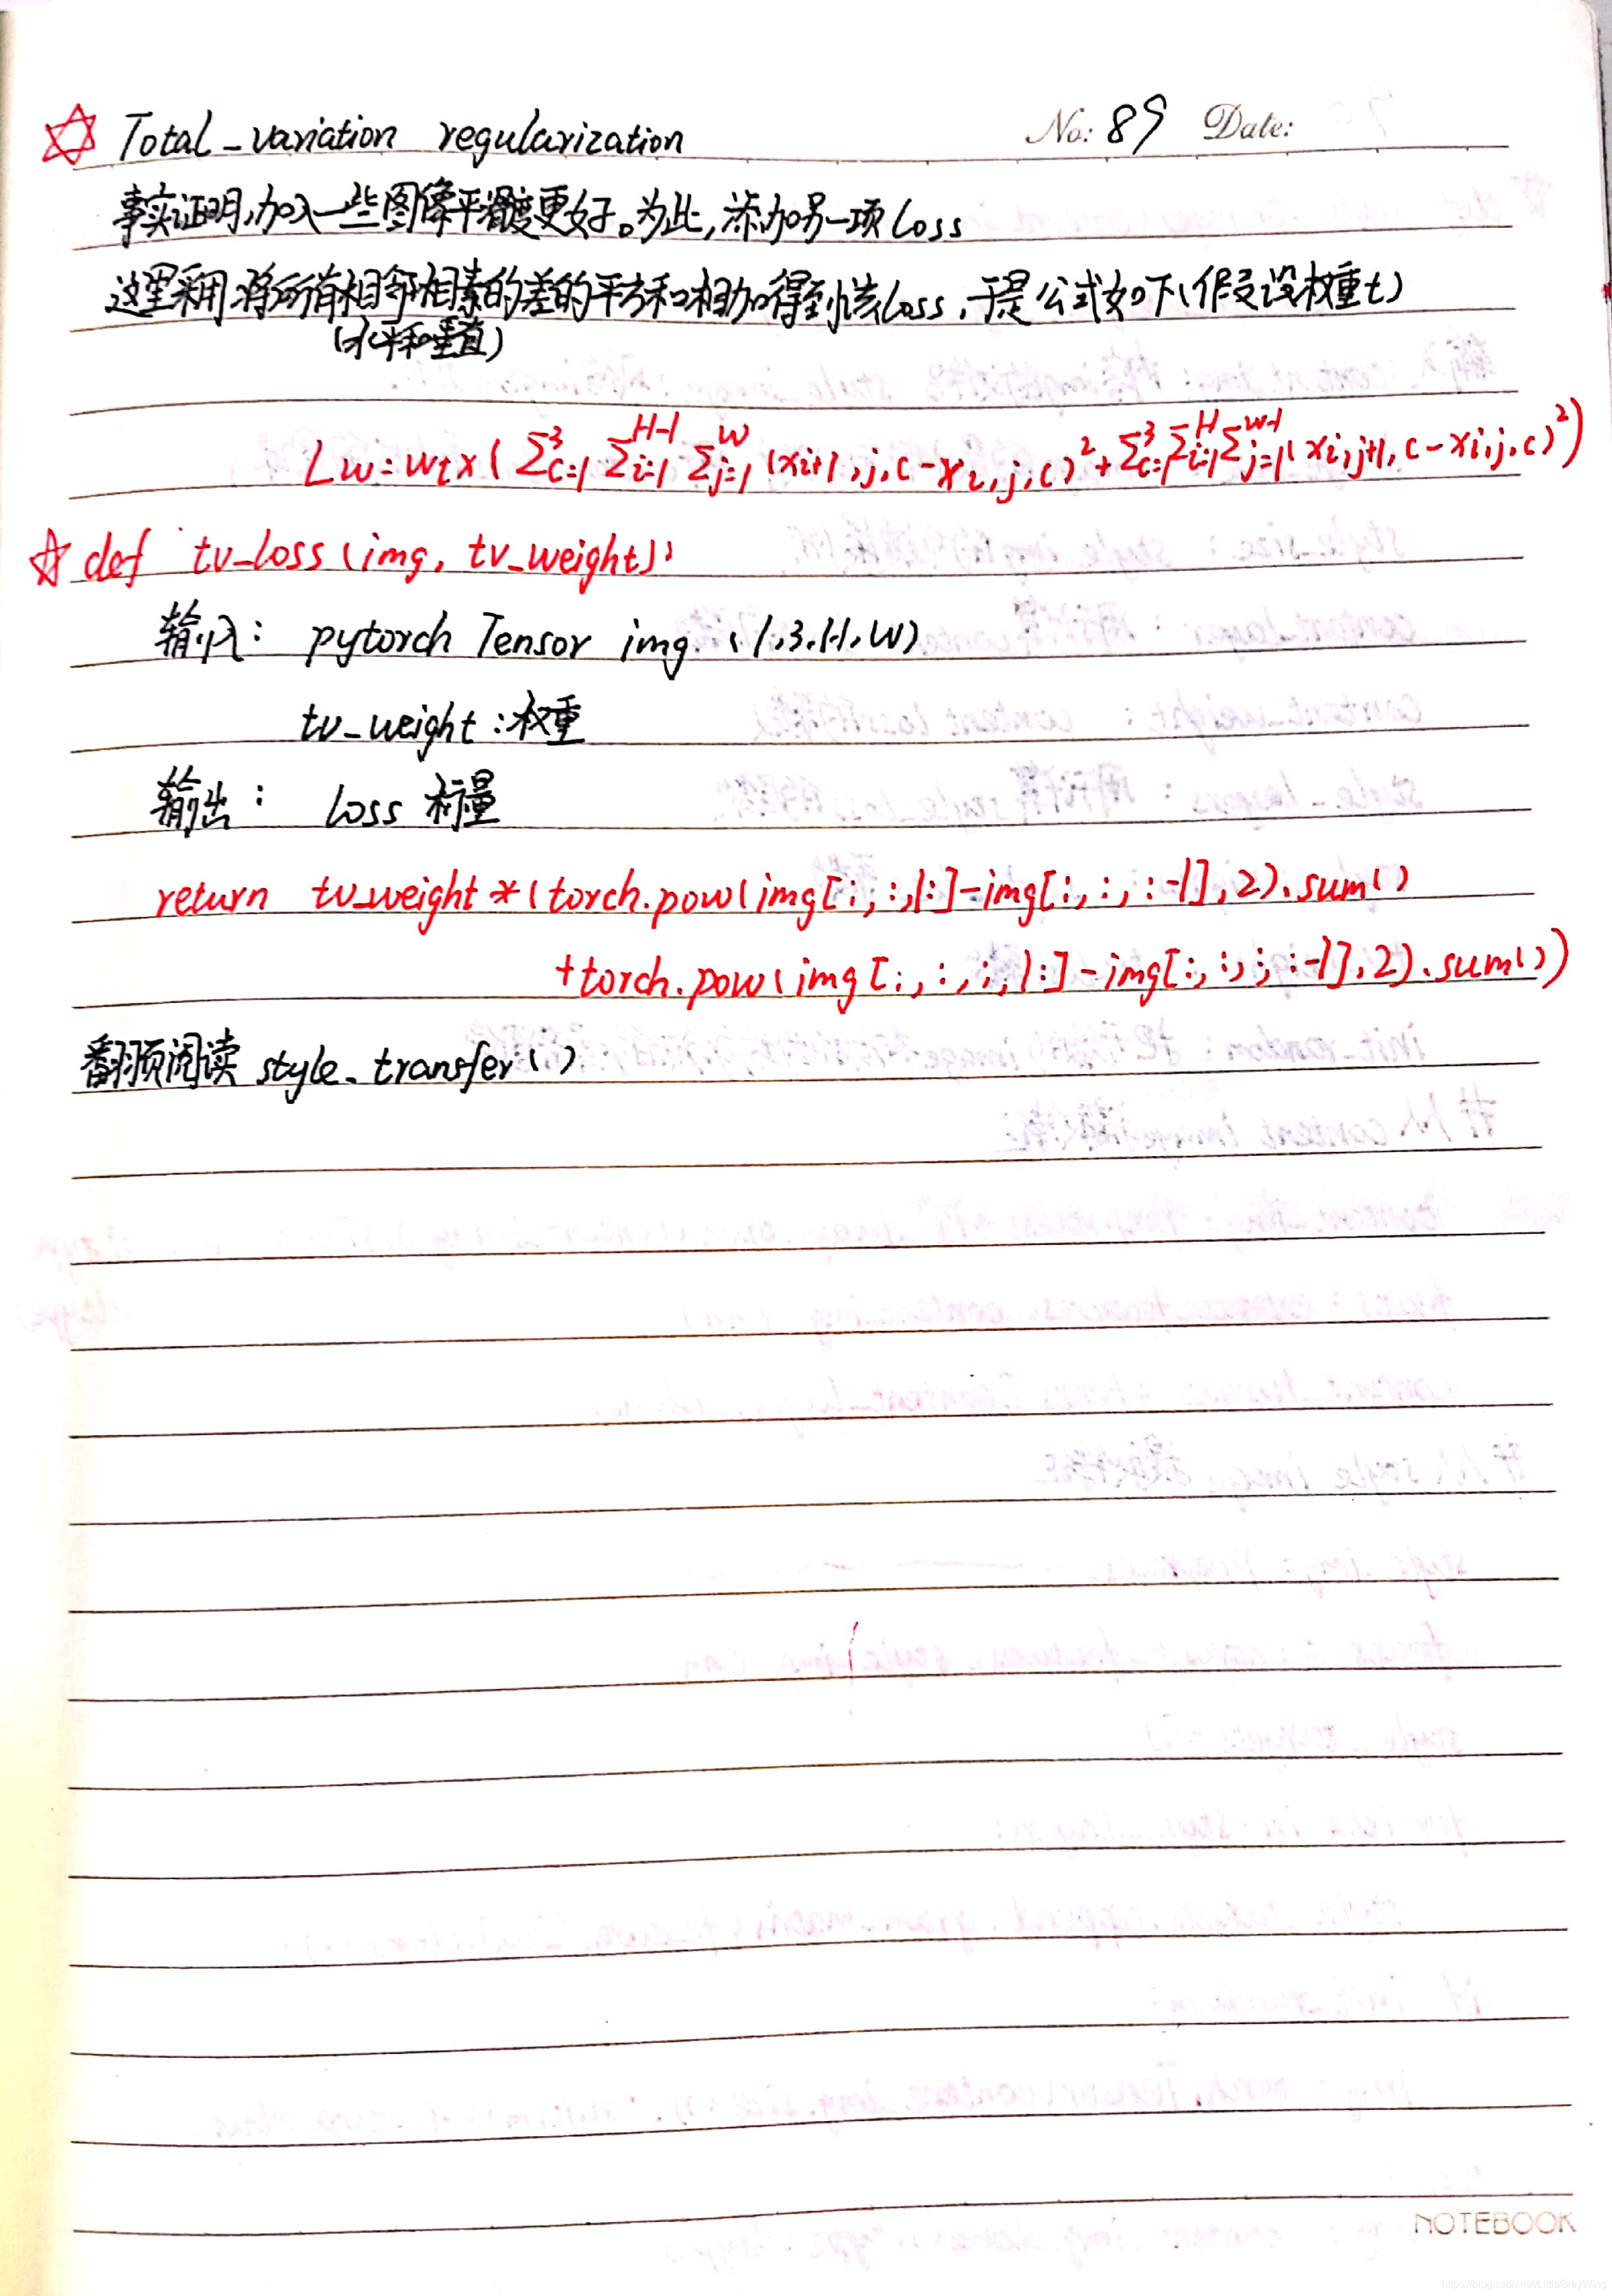 ☆ Total_variation regularization No: 89 Date:
事实证明,加入一些图像平滑度更好。为此,添加另一项loss
这里采用将所有相邻相素的差的平方和相加得到该loss,于是公式如下(假设权重t)
(水平和垂直)
Lw = wt x ( Σ³c=1 Σ^H-1 i=1 Σ^W j=1 (xi+1,j,c - xi,j,c)² + Σ³c=1 Σ^H i=1 Σ^W-1 j=1 (xi,j+1,c - xi,j,c)²)
☆ def tv_loss(img, tv_weight):
输入: pytorch Tensor img. (1,3,H,W)
tv_weight:权重
输出: loss 标量
return tv_weight*(torch.pow(img[:,:,1:]-img[:,:,:-1],2).sum()
+torch.pow(img[:,:,:,1:]-img[:,:,:,:-1],2).sum())
翻页阅读 style_transfer()
NOTEBOOK
https://blog.csdn.net/LittleGreyWing